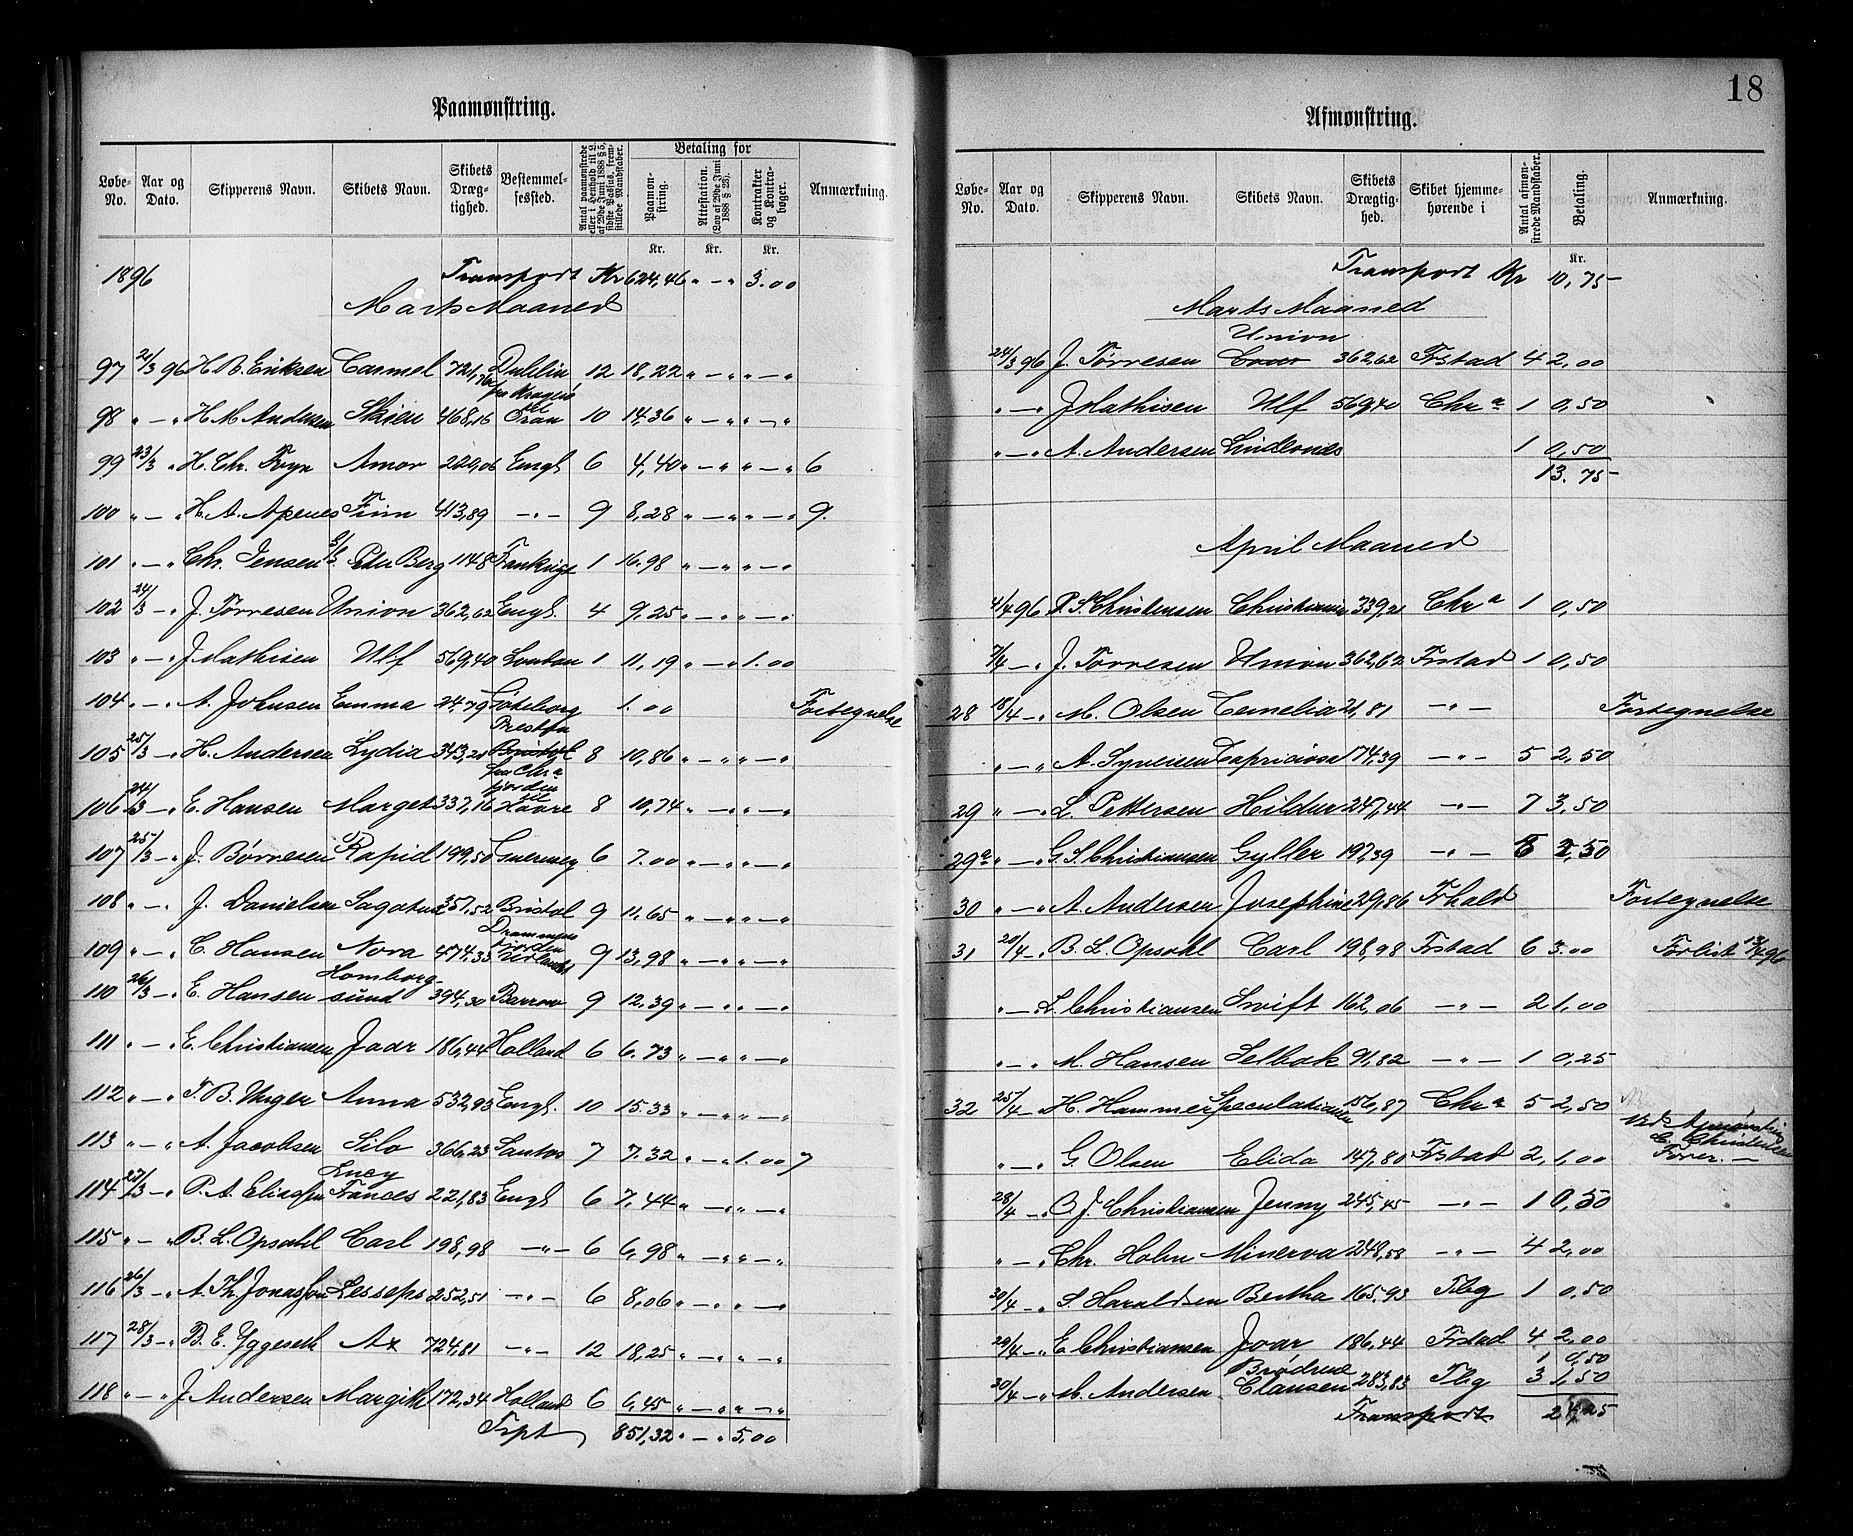 Paamønstring.
Løbe-No. Aar og Dato. Skipperens Navn. Skibets Navn. Skibets Dræg-tighed. Bestemmel-sessted. Antal paamønstrede eller i Henhold til L. af 29de Juni 1888 § 5, sidste Passus, frem-stillede Mandskaber. Betaling for Paamøn-string. Attestation. (Lov af 29de Juni 1888 § 23). Kontrakter og Kontra-bøger. Anmærkning.
Kr. Kr. Kr.
1896 Transport Kr 624,46 " — " 3.00
Marts Maaned
97 21/3 96 H. B. Eriksen Carmel 721,76 Dublin 12 18,22 " — " " — "
98 " — " H. M. Andersen Skien 468,16 fra Kragerø til Oran 10 14,36 " — " " — "
99 23/3 " H. Chr. Foyn Amor 229,06 Engl 6 4,40 " — " " — " 6
100 " — " H. A. Apenes Finn 413,89 — " — 9 8,28 " — " " — " 9.
101 " — " Chr. Jensen S/S Peter Berg 1148 Frankrige 1 16.98 " — " " — "
102 24/3 — " J. Tørresen Union 362,62 Engl. 4 9,25 " — " " — "
103 " — " J Mathisen Ulf 569,40 London 1 11,19 " — " 1.00
104 " — " A. Johnsen Emma 24,79 Göteborg 1.00 Fortegnelse
105 25/3 — " H. Andersen Lydia 343,21 Preston Bristol 8 10,86 " — " " — "
106 24/3 — " E. Hansen Marget 337,16 fra Chra fjorden til Havre 8 10,74 " — " " — "
107 25/3 — " J. Børresen Rapid 199,50 6 7.00 " — " " — "
108 " — " J. Danielsen Sagatun 357,52 Bristol 9 11,65 " — " " — "
109 " — " C. Hansen Nora 474,33 Drammens fjorden 9 13,98 " — " " — "
110 26/3 — " E. Hansen Homborg-sund 394,30 Barrow 9 12,39 " — " " — "
111 " — " E. Christiansen Joar 186,44 Holland 6 6,73 " — " " — "
112 " — " T. B. Unger Anna 532,93 Engl. 10 15.33 " — " " — "
113 " — " A. Jacobsen Silo 366,23 Santos 7 7.32 " — " 1.00 7
114 27/3 — " P. A. Eliassen Lucy Frances 221,83 Engl 6 7,44 " — " " — "
115 " — " B. L. Opsahl Carl 198,98 — " — 6 6,98 " — " " — "
116 26/3 — " A. Th. Jonassen Lesseps 252,51 — " — 6 8,06 " — " " — "
117 28/3 — " B. E. Yggeseth Ax 724,81 — " — 12 18,25 " — " " — "
118 " — " J Andersen Margith 172,34 Holland 6 6,45 " — " " — "
Trpt 851,32 " — " 5,00
18
Afmønstring.
Løbe-No. Aar og Dato. Skipperens Navn. Skibets Navn. Skibets Drægtig-hed. Skibet hjemme-hørende i Antal afmøn-strede Mandskaber. Betaling. Anmærkning.
Kr.
Transport Kr 10,75
Marts Maaned
24/3 96 J. Tørresen Union 362,62 Frstad 4 2,00
" — " J Mathisen Ulf 569,40 Chra 1 0,50
" — " A. Andersen Lindesnes 1 0,50
13.75
April Maaned
4/4 96 P. S. Christensen Christiania 339,21 Chra 1 0,50
7/4 — " J. Tørresen Union 362,62 Frstad 1 0,50
28 18/4 — " M. Olsen Cornelia 21,81 — " — Fortegnelse
" — " A. Syversen Capriciosa 174,39 — " — 5 2,50
29 " — " L. Pettersen Hildur 247,44 — " — 7 3,50
29a " — " G. S. Christiansen Gyller 197,39 — " — 5 2,50
30 " — " A. Andersen Josephine 29,86 Frhald Fortegnelse
31 20/4 — " B. L. Opsahl Carl 198,98 Frstad 6 3.00 Forlist 13/4 96
" — " L. Christiansen Swift 162,06 — " — 2 1,00
" — " M. Hansen Selbak 91,82 — " — 1 0,25
32 25/4 — " H. Hammer Speculationen 156,87 Chra 5 2,50 Ved Afmønstring C. Christensen Fører. —
" — " G. Olsen Elida 147,80 Frstad 2 1,00
28/4 — " O. J. Christiansen Jenny 245,45 — " — 1 0,50
" — " Chr. Holm Minerva 248,58 — " — 4 2,00
30/4 — " S. Haraldsen Bertha 165.93 Tbg 1 0,50
29/4 — " E Christiansen Joar 186,44 Frstad 4 2,00
1 0,50
30/4 — " M. Andersen Brødrene Clausen 283,83 Tbg 3 1,50
Transport 24,25